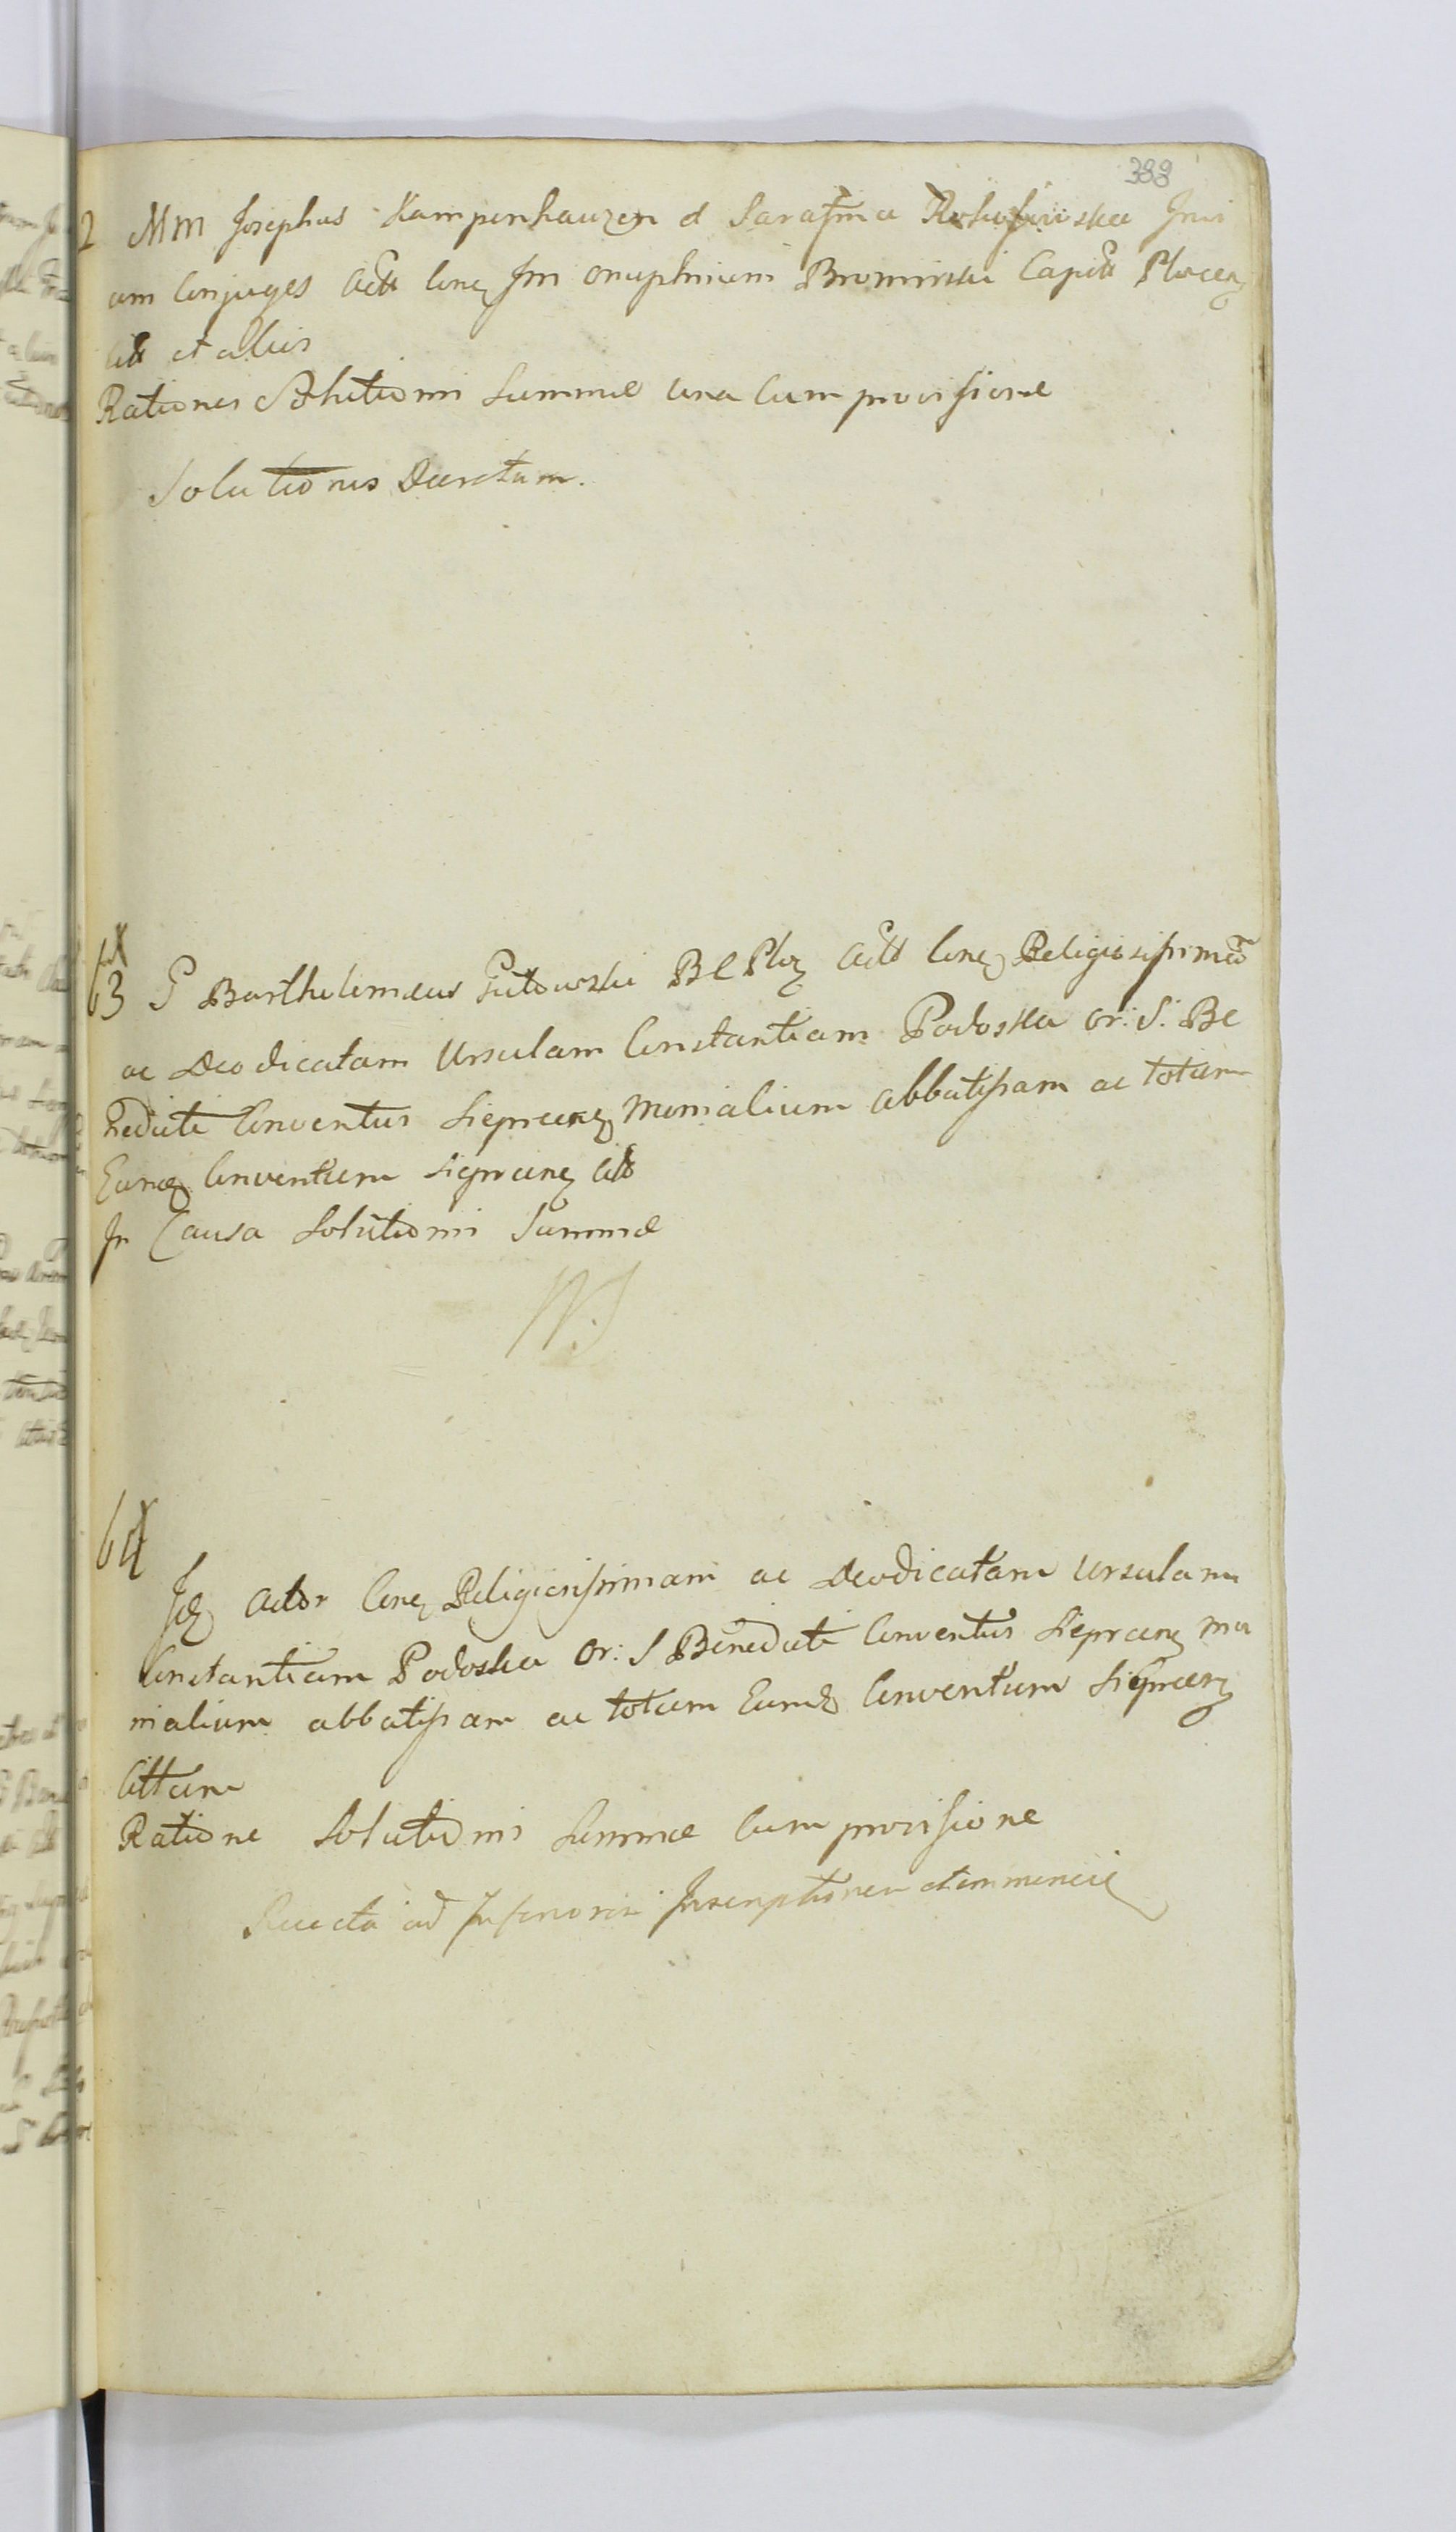 388
2 MM Josephus Kampenhauzen et Sarafina Invi
cem Conjuges Actt Conq Jm Onuphrium Brominski Capitt Plocenq
Citt et alios
Rationes Solutionis Summæ una Cum provisione
Solutionis Decretum.
63 G Barthelemæus Gutowski B C Ploq Actt Conq Religiosissimã
ac Deodicatam Ursulam Constantiam Podoska Or: S: Be
nedicti Conventus Sieprcenq Monialium abbatissam ac totum
Eundq Conventum Sieprcenq Citt
In Causa Solutionis Summæ
64
Idq Actor Conq Religiosissimam ac Deodicatam Ursulam
Constantiam Podoska Or: S Benedicti Conventus Sieprcenq Mo
nialium abbatissam ac totum Eundq Conventum Sieprcenq
Cittum
Ratione Solutionis Summæ Cum provisione
ad Inscriptionem